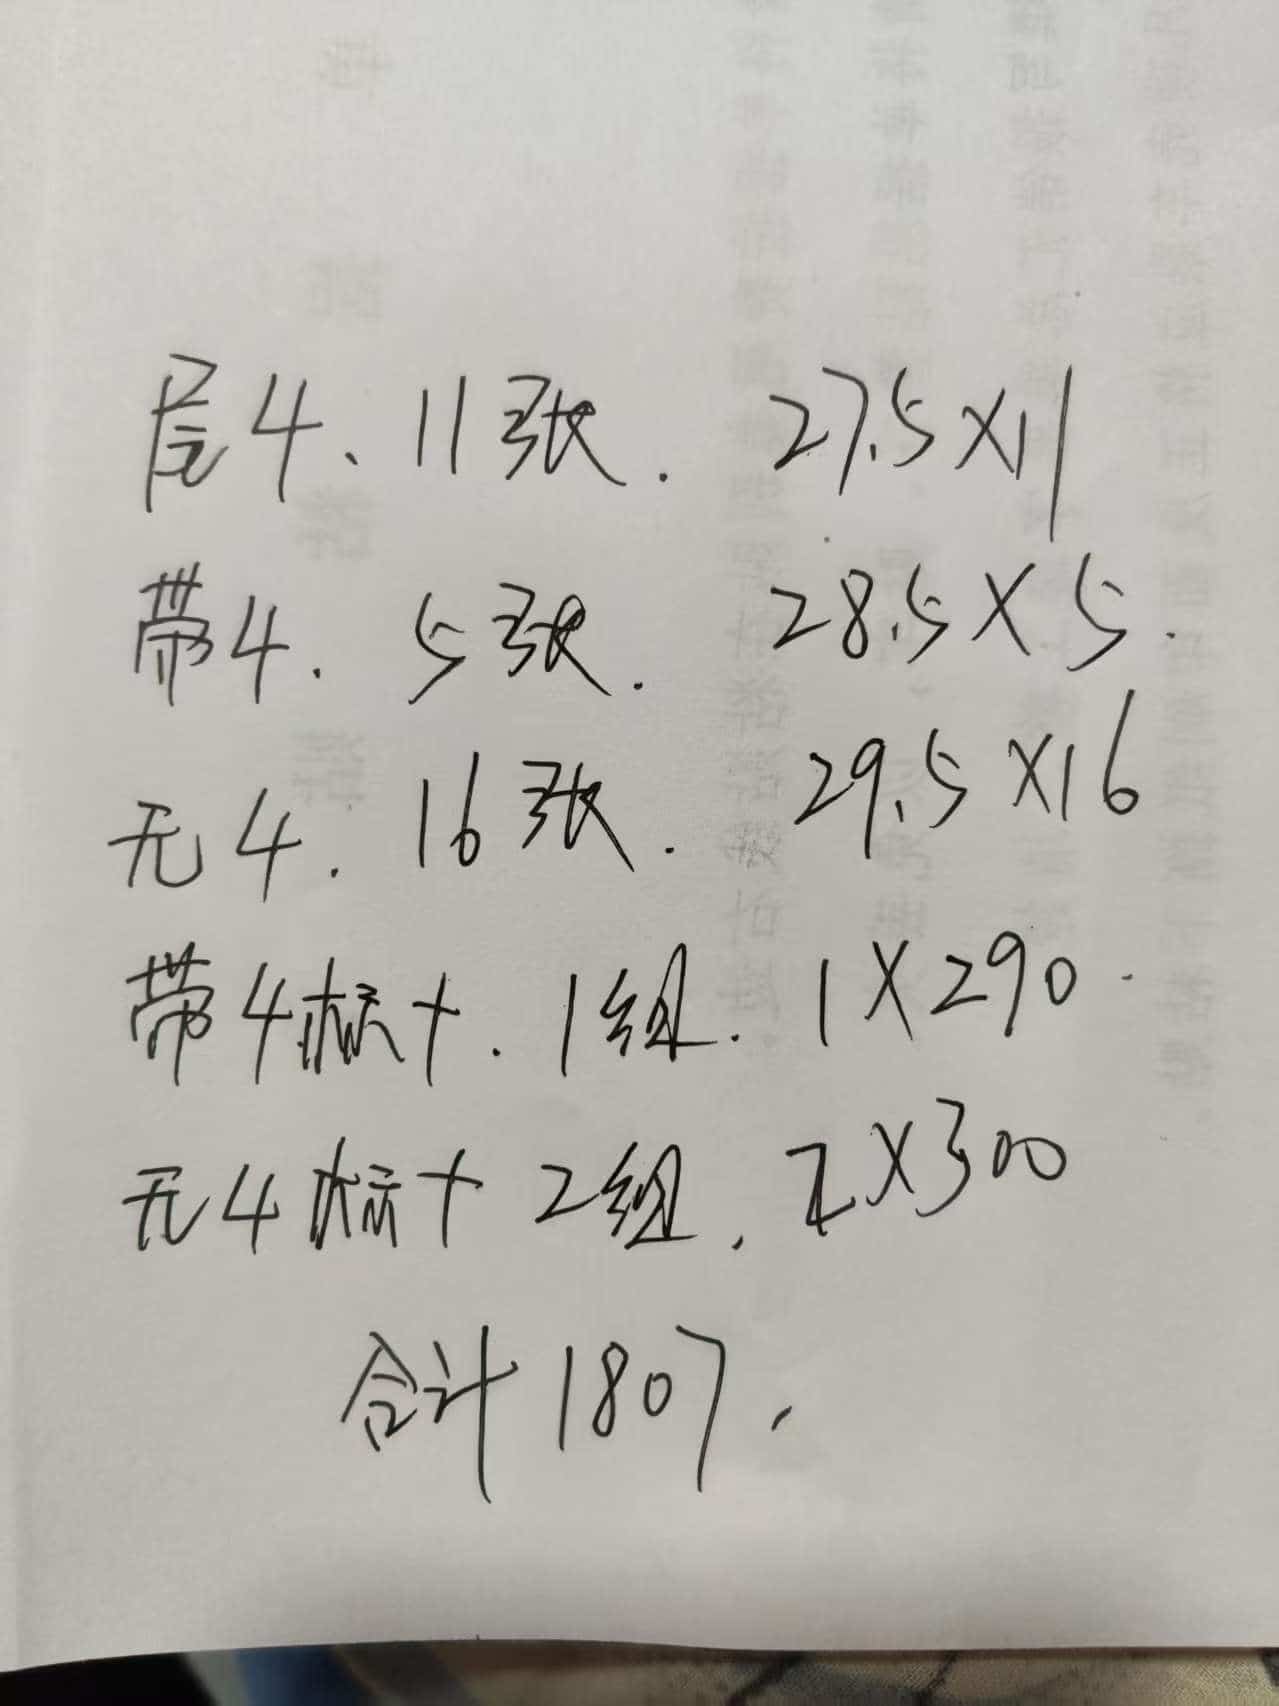 尾4、11张. 27.5×11
带4. 5张. 28.5×5.
无4. 16张. 29.5×16
带4标十. 1组. 1×290.
无4标十 2组. 2×300
合计1807.